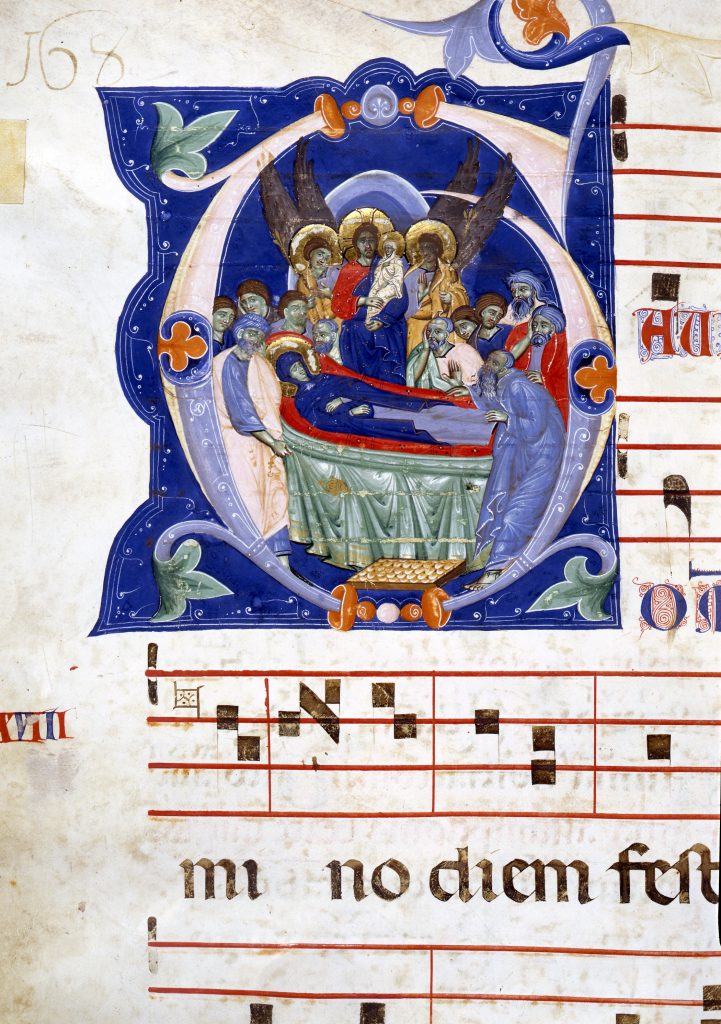 168
AU
O
XVIII
mi no diem fest